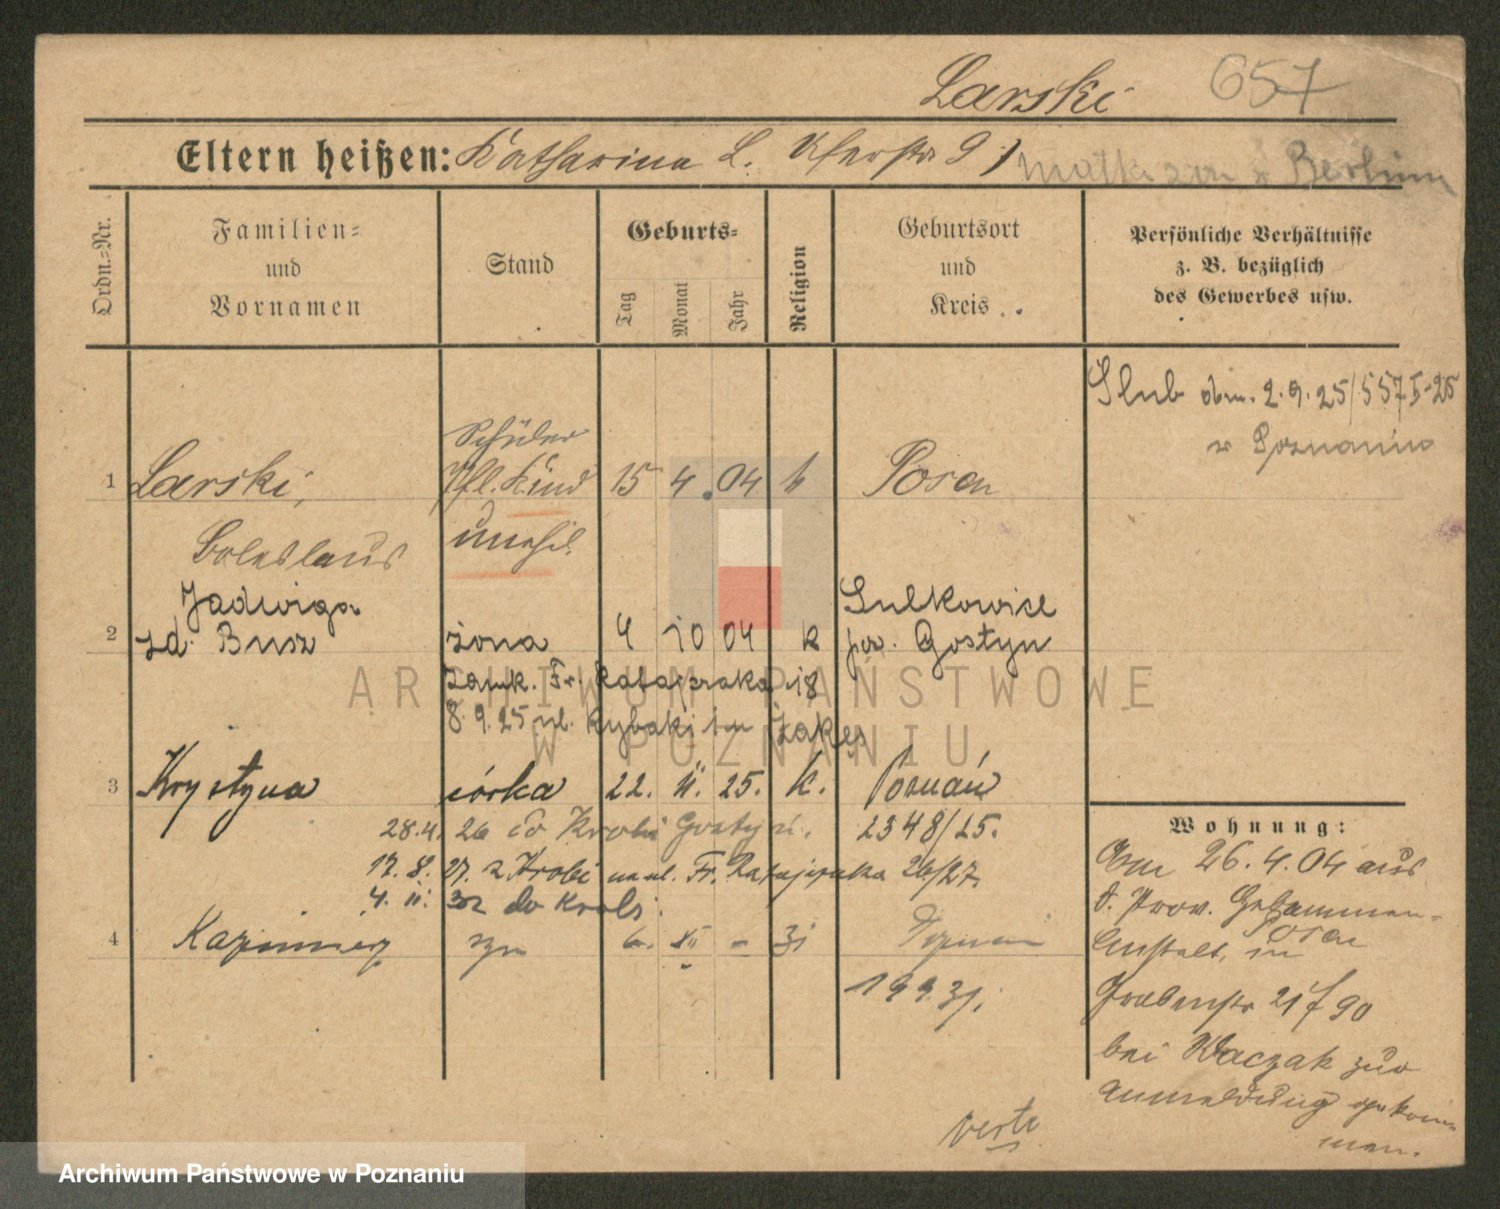 Larski 657
Eltern heißen: Katharina L. Uferstr 9 matka zam w Berlinie
Ordn.-Nr.
Familien-
und
Vornamen
Stand
Geburts-
Tag
Monat
Jahr
Religion
Geburtsort
und
Kreis
Persönliche Verhältnisse
z. B. bezüglich
des Gewerbes usw.
Slub 2.9.25/557
w Poznaniu
Schüler
1 Larski, Pfl. Kind 15 4. 04 k Posen
Boleslaus unehl.
Jadwiga Sulkowice
2 zd. Busz żona 4 10 04 k pow. Gostyn
zamk. Fr. Ratajczaka 18
8.9.25 ul. Rybaki
3 Krystyna córka 22. 25. k. Poznań
28.4. 26 do Krobi Gostyń. 2348/25.
17. 8. 27. z Krobi na ul. Fr. Ratajczaka 26/27.
4. 32 do Krobi
4 Kazimierz syn
Wohnung:
Am 26.4.04 aus
d. Prov. Hebammen-
Anstalt, in Posen
Grabenstr 21 f 90
bei Waczak zur
Anmeldung gekom-
men.
verte
ARCHIWUM PAŃSTWOWE
W POZNANIU
Archiwum Państwowe w Poznaniu